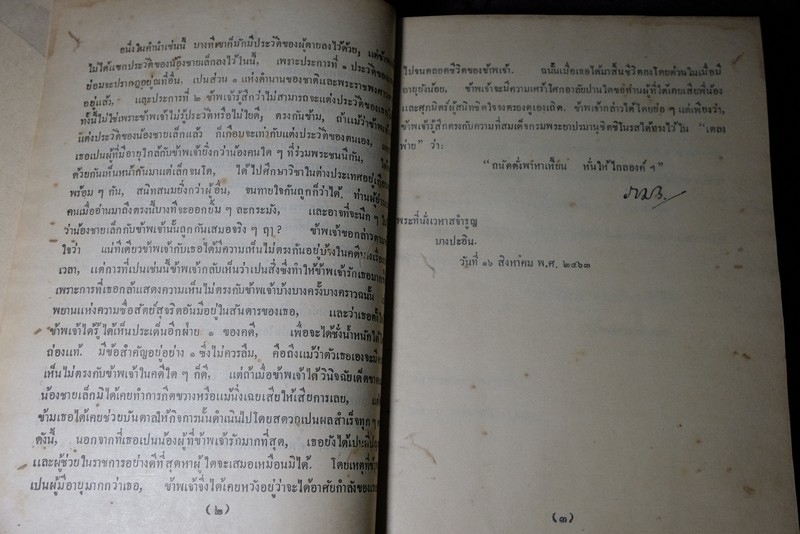 อนึ่งในคำนำเช่นนี้ บางทีเขาก็มักมีประวัติของผู้ตายลงไว้ด้วย, แต่ข้าพเจ้า
ไม่ได้แซกประวัติของน้องชายเล็กลงไว้ในนี้, เพราะประการที่ ๑ ประวัติของ
ย่อมจะปรากฏอยู่ณที่อื่น, เปนส่วน ๑ แห่งตำนานของชาติและพระราชพงศาวดาร
อยู่แล้ว, และประการที่ ๒ ข้าพเจ้ารู้สึกว่าไม่สามารถจะแต่งประวัติของเธอ
ทั้งนี้ไม่ใช่เพราะข้าพเจ้าไม่รู้ประวัติหรือไม่ใยดี; ตรงกันข้าม, ถ้าแม้ว่าข้าพเจ้า
แต่งประวัติของน้องชายเล็กแล้ว ก็เกือบจะเท่ากับแต่งประวัติของตนเอง,
เธอเปนผู้ที่มีอายุใกล้กับข้าพเจ้ายิ่งกว่าน้องคนใด ๆ ที่ร่วมพระชนนีกัน,
ด้วยกันเห็นหน้ากันมาแต่เล็กจนโต, ได้ไปศึกษาวิชาในต่างประเทศอยู่
พร้อม ๆ กัน, สนิทสนมยิ่งกว่าผู้อื่น, จนทายใจกันถูกก็ว่าได้. ท่านผู้อ่าน
คนเมื่ออ่านมาถึงตรงนี้บางทีจะออกยิ้ม ๆ ละกระมัง, และอาจที่จะนึก ๆ
ว่าน้องชายเล็กกับข้าพเจ้านั้นถูกกันเสมอจริง ๆ ฤๅ? ข้าพเจ้าขอกล่าว
ใจว่า แน่ทีเดียวข้าพเจ้ากับเธอได้มีความเห็นไม่ตรงกันอยู่บ้างในคดี
เวลา, แต่การที่เปนเช่นนี้ข้าพเจ้ากลับเห็นว่าเปนสิ่งซึ่งทำให้ข้าพเจ้ารักเธอมาก
เพราะการที่เธอกล้าแสดงความเห็นไม่ตรงกับข้าพเจ้าบ้างบางครั้งบางคราวฉนั้น
พยานแห่งความซื่อสัตย์สุจริตอันมีอยู่ในสันดารของเธอ, และว่าเธอตั้งใจ
ข้าพเจ้าได้รู้ได้เห็นประเด็นอีกฝ่าย ๑ ของคดี, เพื่อจะได้ชั่งน้ำหนักได้
ถ่องแท้. มีข้อสำคัญอยู่อย่าง ๑ ซึ่งไม่ควรลืม, คือถึงแม้ว่าตัวเธอเองจะมี
เห็นไม่ตรงกับข้าพเจ้าในคดีใด ๆ ก็ดี, แต่ถ้าเมื่อข้าพเจ้าได้วินิจฉัยเด็ดขาด
น้องชายเล็กมิได้เคยทำการกีดขวางหรือแม้นิ่งเฉยเสียให้เสียการเลย,
ข้ามเธอได้เคยช่วยบันดาลให้กิจการนั้นดำเนินไปโดยสดวกเปนผลสำเร็จทุก ๆ
ดังนี้, นอกจากที่เธอเปนน้องผู้ที่ข้าพเจ้ารักมากที่สุด, เธอยังได้เปน
และผู้ช่วยในราชการอย่างดีที่สุดหาผู้ใดจะเสมอเหมือนมิได้. โดยเหตุที่ข้าพเจ้า
เปนผู้มีอายุมากกว่าเธอ, ข้าพเจ้าจึ่งได้เคยหวังอยู่ว่าจะได้อาศัยกำลังของเธอ
(๒)
ไปจนตลอดชีวิตของข้าพเจ้า. ฉนั้นเมื่อเธอได้มาสิ้นชีวิตลงโดยด่วนในเมื่อมี
อายุยังน้อย, ข้าพเจ้าจะมีความเศร้าโศกอาลัยปานใดขอท่านผู้ที่ได้เคยเสียพี่น้อง
และศุภมิตรผู้สนิทชิดใจจงตรองดูเองเถิด. ข้าพเจ้ากล่าวได้โดยย่อ ๆ แต่เพียงว่า,
ข้าพเจ้ารู้สึกตรงกับความที่สมเด็จกรมพระยาปรมานุชิตชิโนรสได้ทรงไว้ใน "เตลง
พ่าย" ว่า:
"ถนัดดั่งพาหาเหี้ยน หั่นให้ไกลองค์ ฯ"
พระที่นั่งเวหาสจำรูญ
บางปะอิน.
วันที่ ๑๖ สิงหาคม พ.ศ. ๒๔๖๓
(๓)